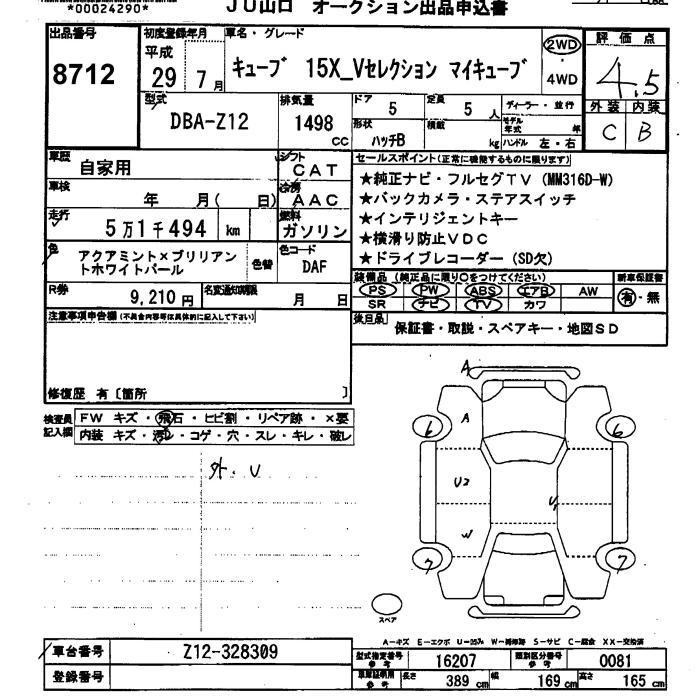 *00024290*
JU山口 オークション出品申込書
出品番号
8712
初度登録年月
平成
29 7月
車名・グレード
キューブ 15X_Vセレクション マイキューブ
2WD
4WD
評価点
4.5
外装 内装
C B
型式
DBA-Z12
排気量
1498 cc
ドア
5
定員
5 人
形状
ハッチB
積載
kg
ディーラー・並行
モデル年式 年
ハンドル 左・右
車歴
自家用
シフト
CAT
車検
年 月( 日)
冷房
AAC
走行
5万1千494 km
燃料
ガソリン
色
アクアミント×ブリリアン
トホワイトパール
色替
色コード
DAF
R券
9,210円
名変通知期限
月 日
セールスポイント(正常に機能するものに限ります)
★純正ナビ・フルセグTV (MM316D-W)
★バックカメラ・ステアスイッチ
★インテリジェントキー
★横滑り防止VDC
★ドライブレコーダー (SD欠)
装備品 (純正品に限り○をつけてください)
PS PW ABS エアB AW
SR ナビ TV カワ
新車保証書
有・無
後日品
保証書・取説・スペアキー・地図SD
注意事項申告欄 (不具合内容等は具体的に記入して下さい)
修復歴 有〔箇所 〕
検査員
記入欄
FW キズ・飛石・ヒビ割・リペア跡・×要
内装 キズ・汚レ・コゲ・穴・スレ・キレ・破レ
外. U
A
A
6
6
U2
U1
W
7
7
スペア
A-キズ E-エクボ U-凹み W-補修跡 S-サビ C-腐食 XX-交換済
車台番号
Z12-328309
登録番号
型式指定番号
参考
16207
類別区分番号
参考
0081
車庫証明用
参考
長さ
389 cm
幅
169 cm
高さ
165 cm